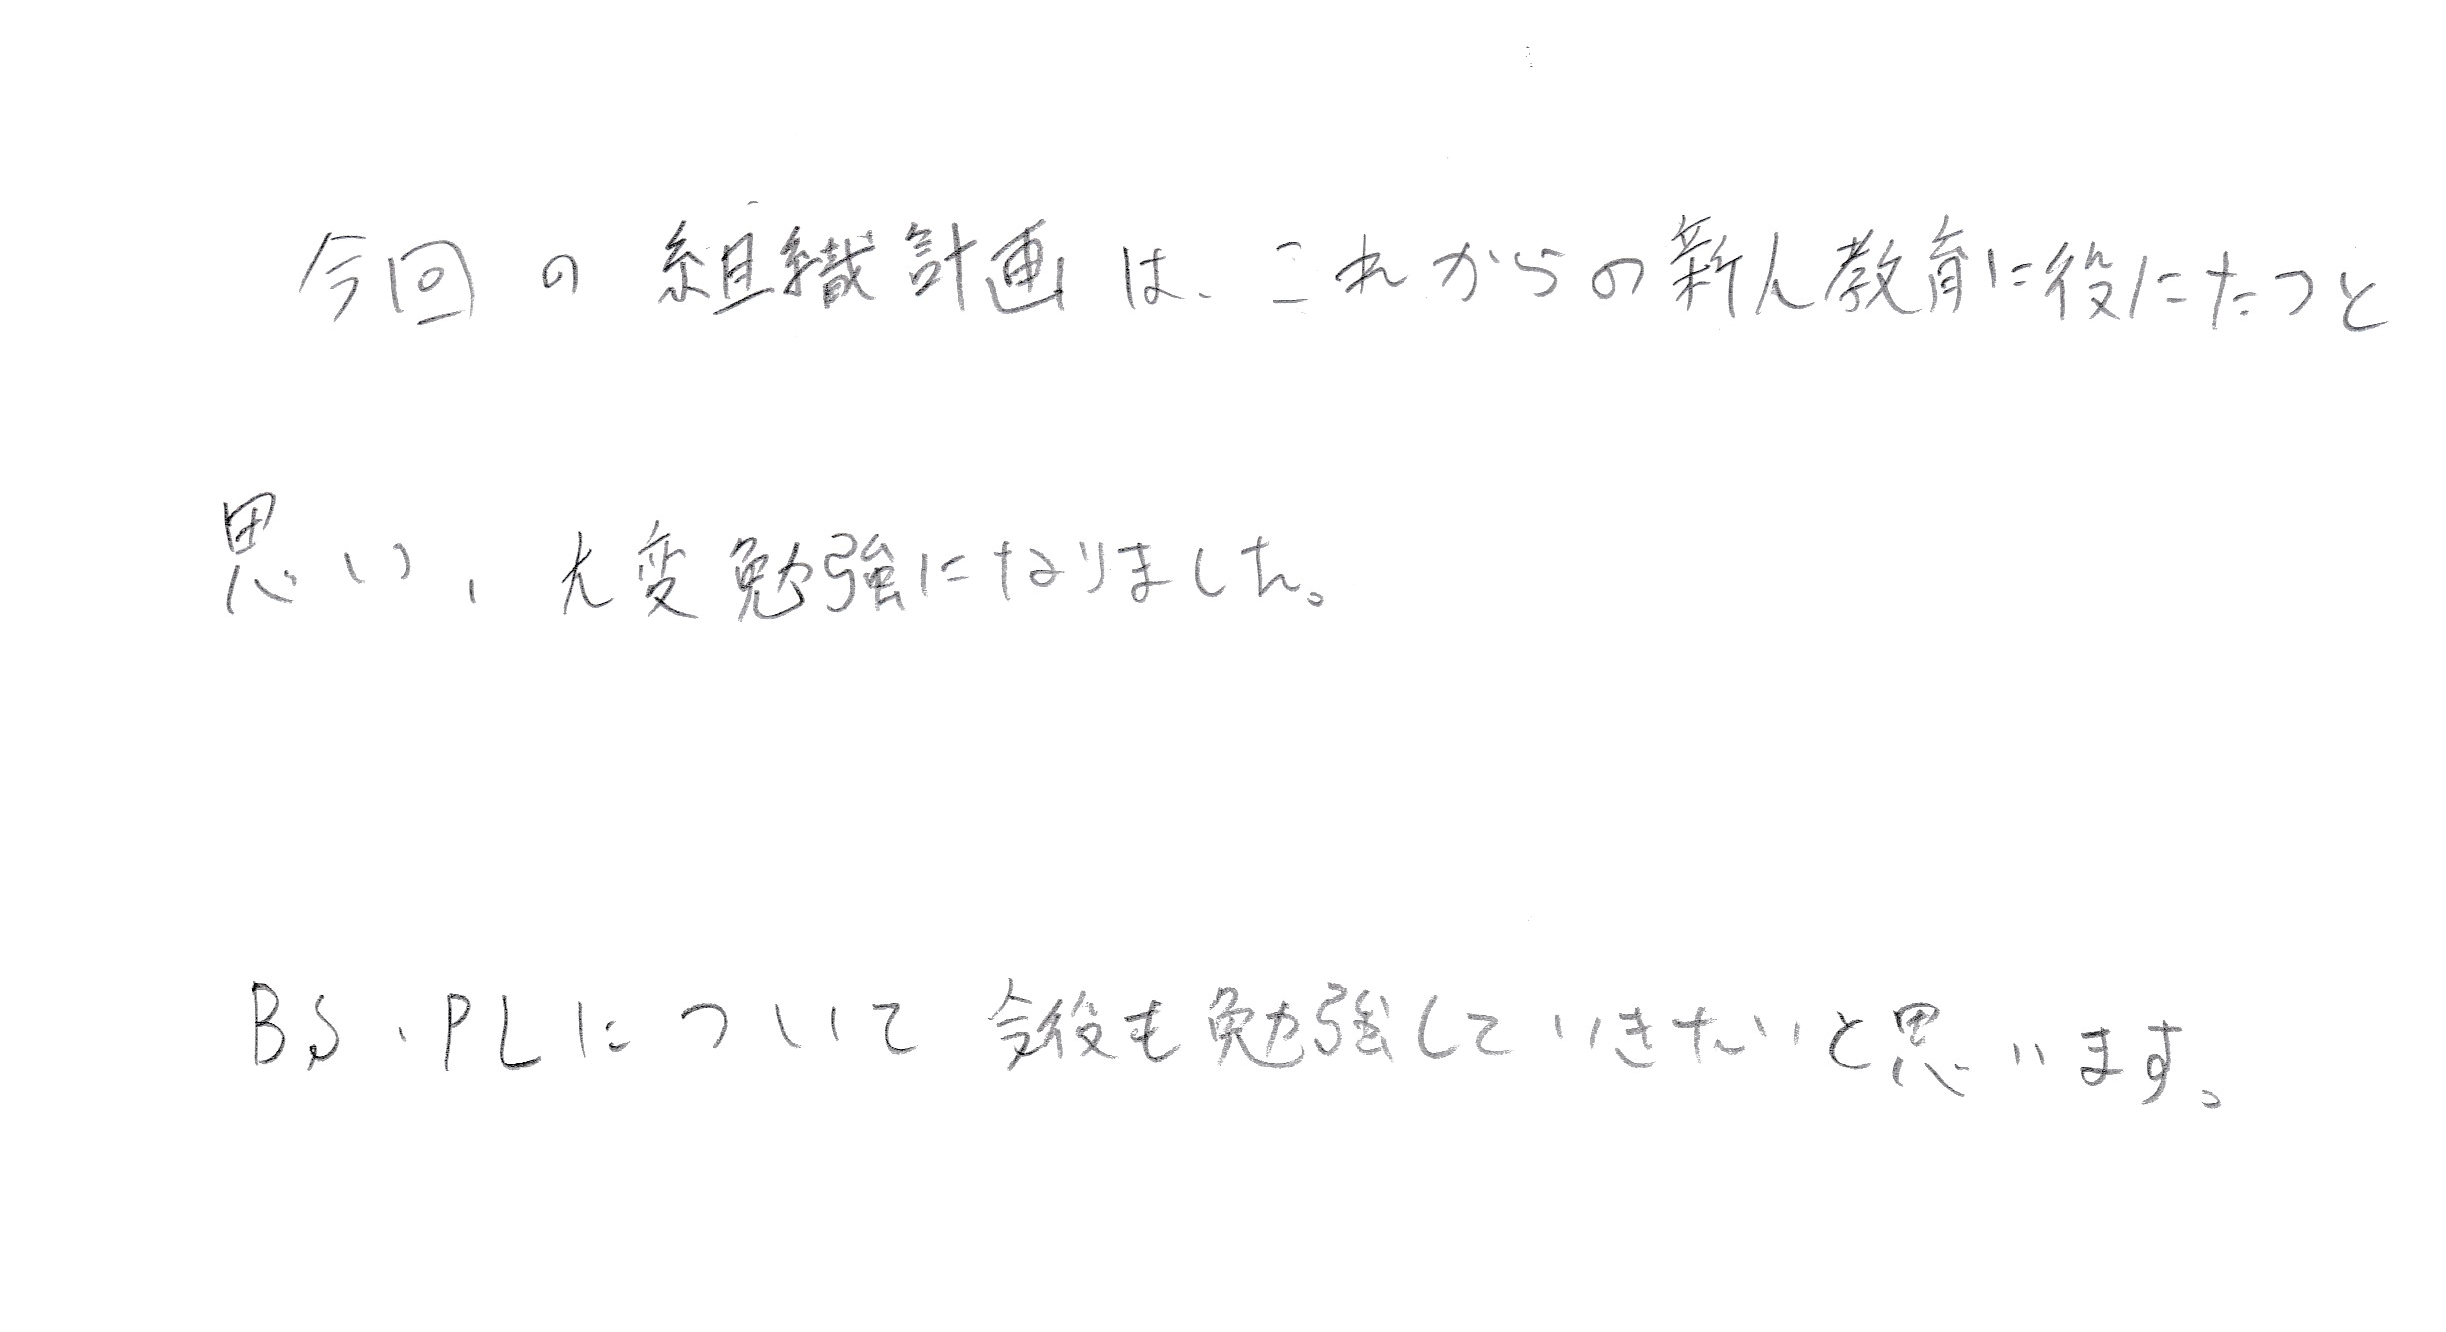 今回の組織計画は、これからの新人教育に役にたつと
思い、大変勉強になりました。
BS・PLについて今後も勉強していきたいと思います。